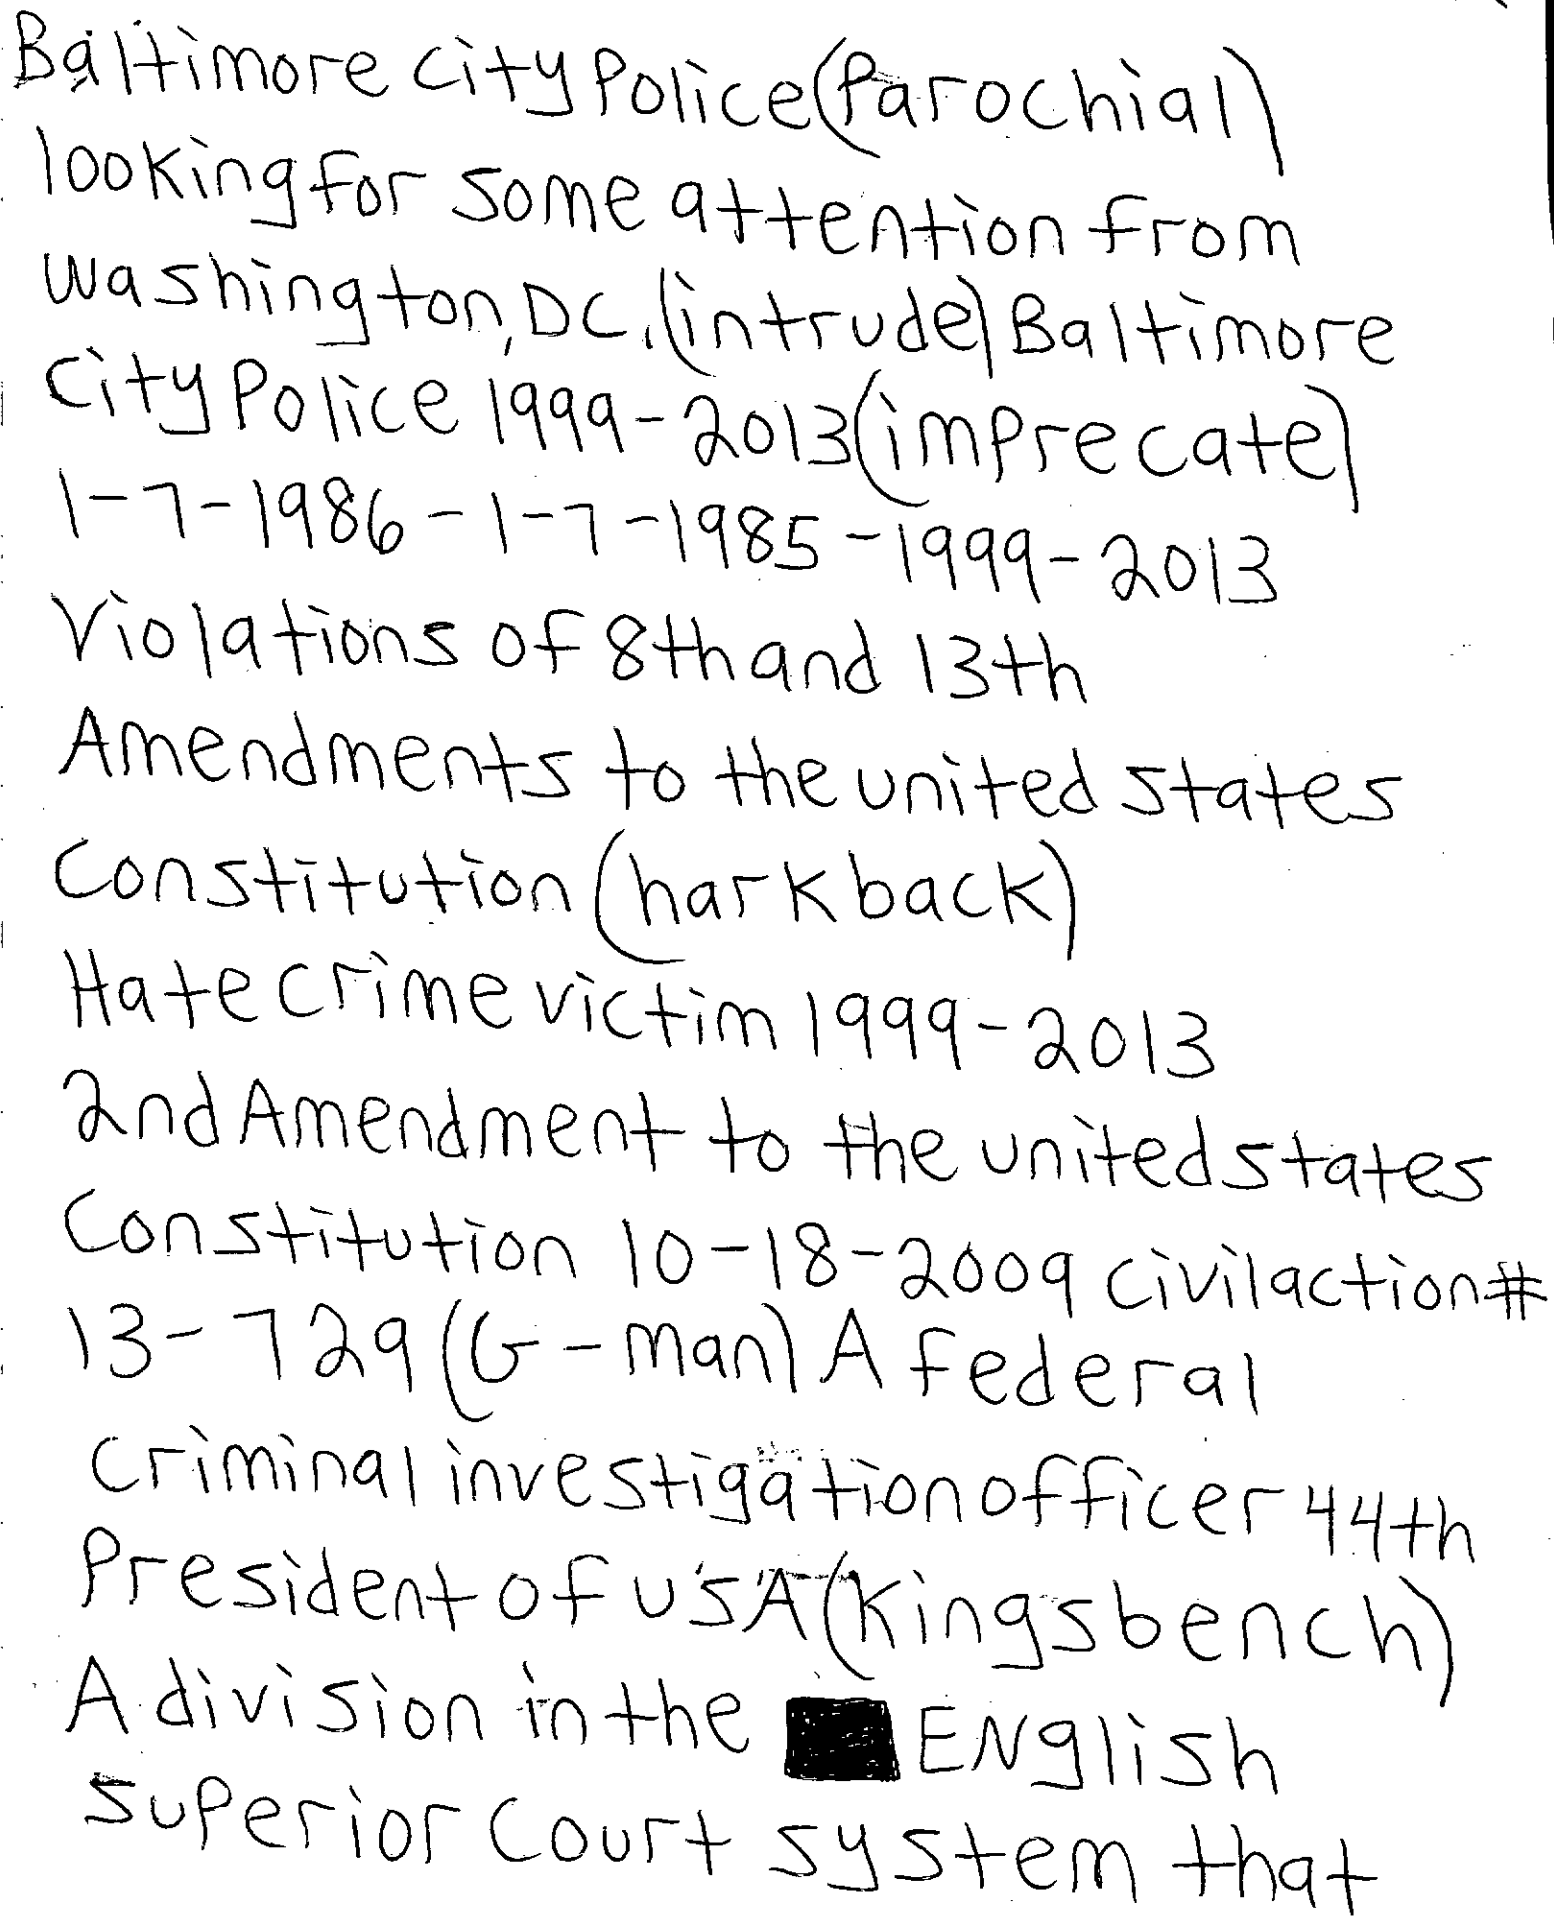 Baltimore city Police (Parochial)
looking for some attention from
washington, DC. (intrude) Baltimore
City Police 1999-2013 (imprecate)
1-7-1986-1-7-1985-1999-2013
Violations of 8th and 13th
Amendments to the united states
Constitution (hark back)
Hate crime victim 1999-2013
2nd Amendment to the united states
Constitution 10-18-2009 civil action #
13-729 (G-man) A federal
criminal investigation officer 44th
President of USA (Kings bench)
A division in the ENglish
superior court system that